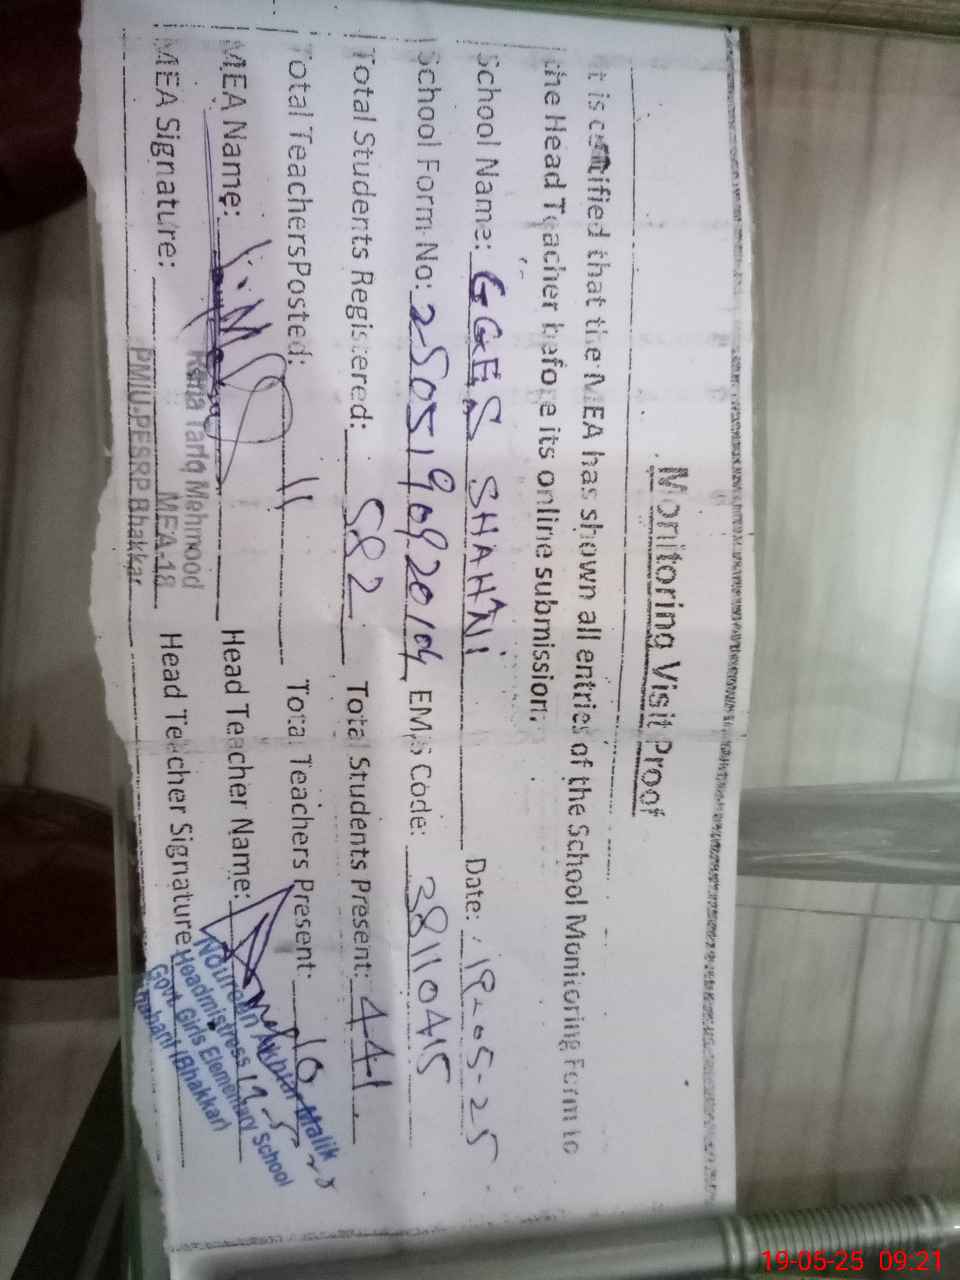 Monitoring Visit Proof
It is certified that the MEA has shown all entries of the School Monitoring Form to
the Head Teacher before its online submission.
School Name: GGES SHAHNI Date: 19-05-25
School Form No: EMIS Code: 38110415
Total Students Registered: 582 Total Students Present: 441
Total TeachersPosted: 11 Total Teachers Present: 10
MEA Name: Head Teacher Name:
MEA Signature: Head Teacher Signature
Rana Tariq Mehmood
MEA-18
PMIU-PESRP Bhakkar
Noureen Akhtar Malik
Headmistress
Govt. Girls Elementary School
Shahani (Bhakkar)
19-05-25 09:21